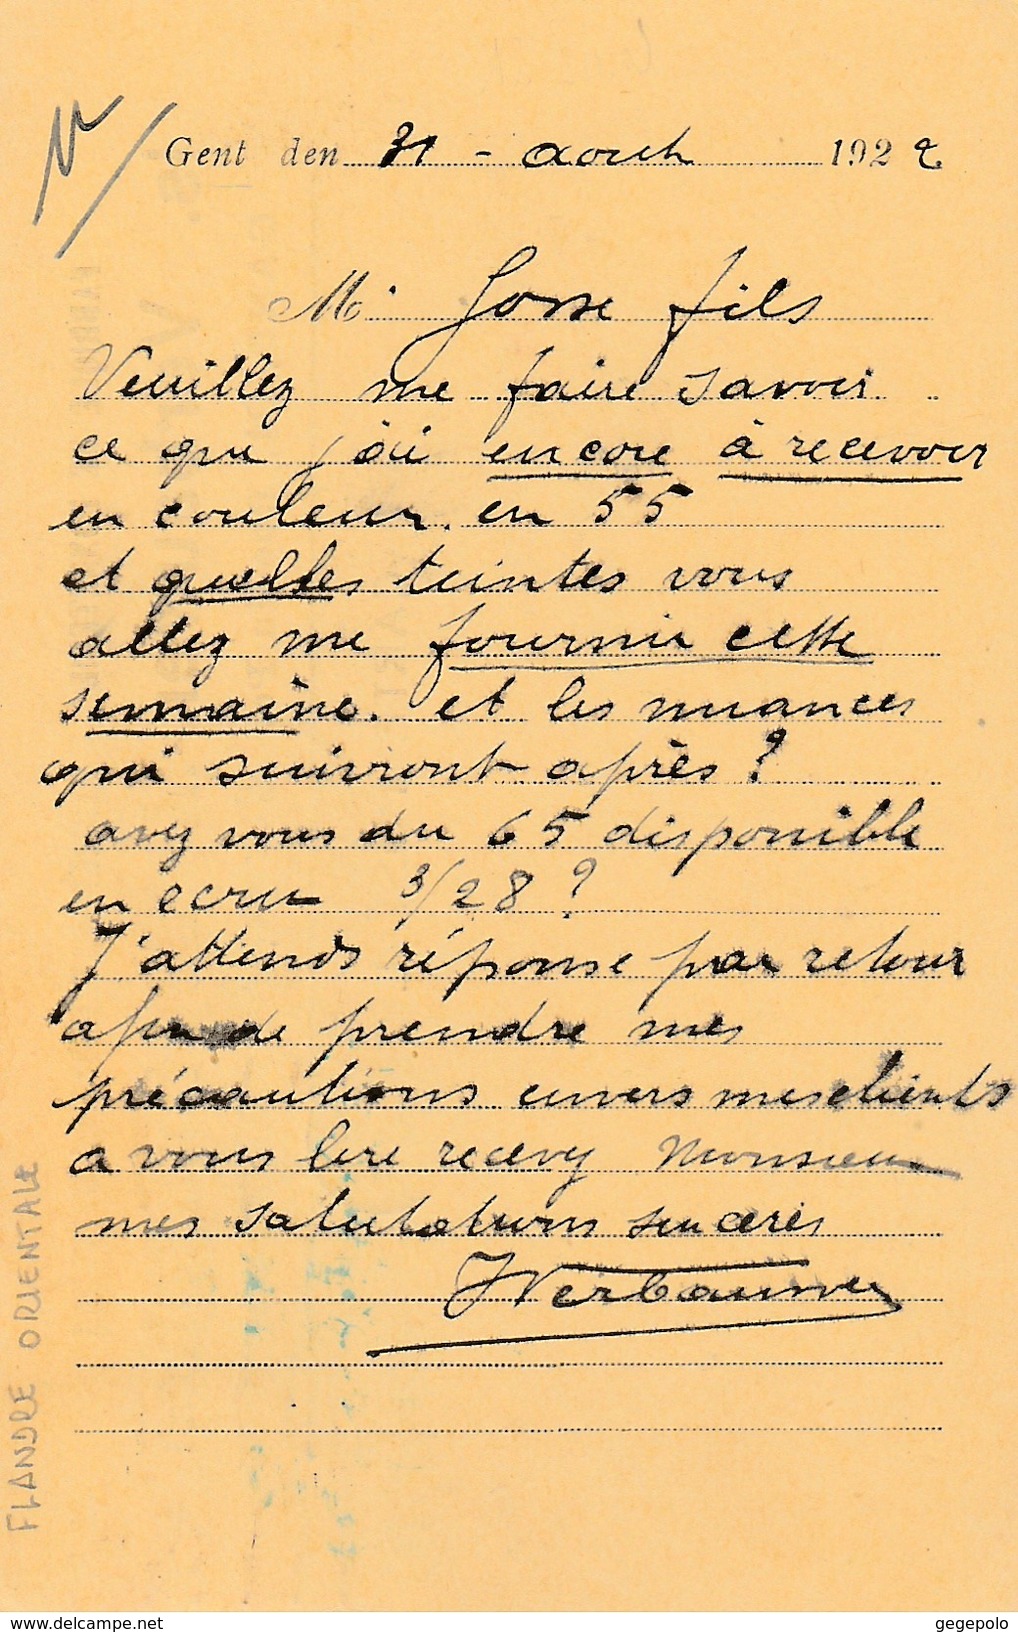 Gent den 31 - aout 1922
M. Gosse fils
Veuillez me faire savoir
ce que j'ai encore à recevoir
en couleur. en 55
et quelles teintes vous
allez me fournir cette
semaine. et les nuances
qui suivront après ?
avez vous du 65 disponible
en ecru 3/28 ?
J'attends réponse par retour
afin de prendre mes
précautions envers mes clients
a vous lire recevez Monsieur
mes salutations sinceres
FLANDRE ORIENTALE
www.delcampe.net
gegepolo